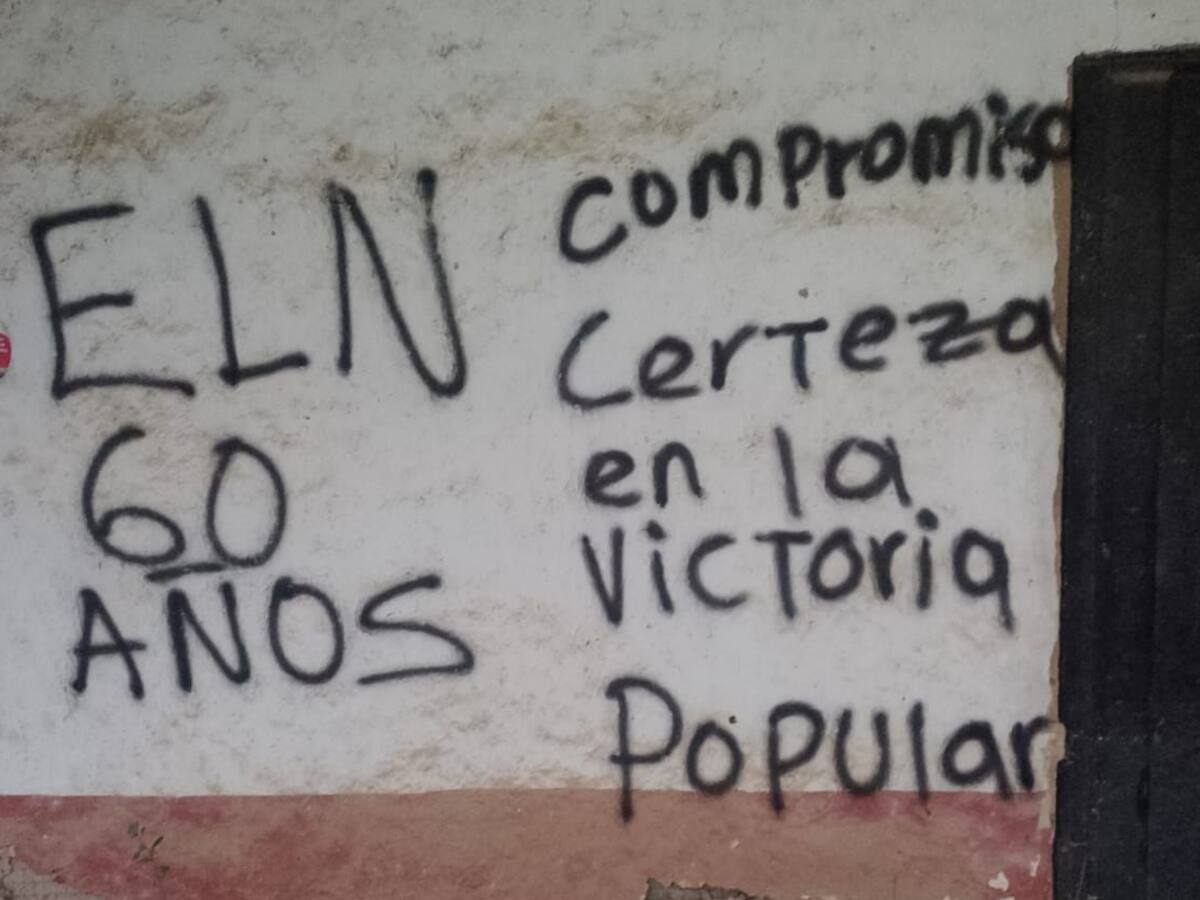 ELN
60
AÑOS
compromiso
Certeza
en la
Victoria
Popular